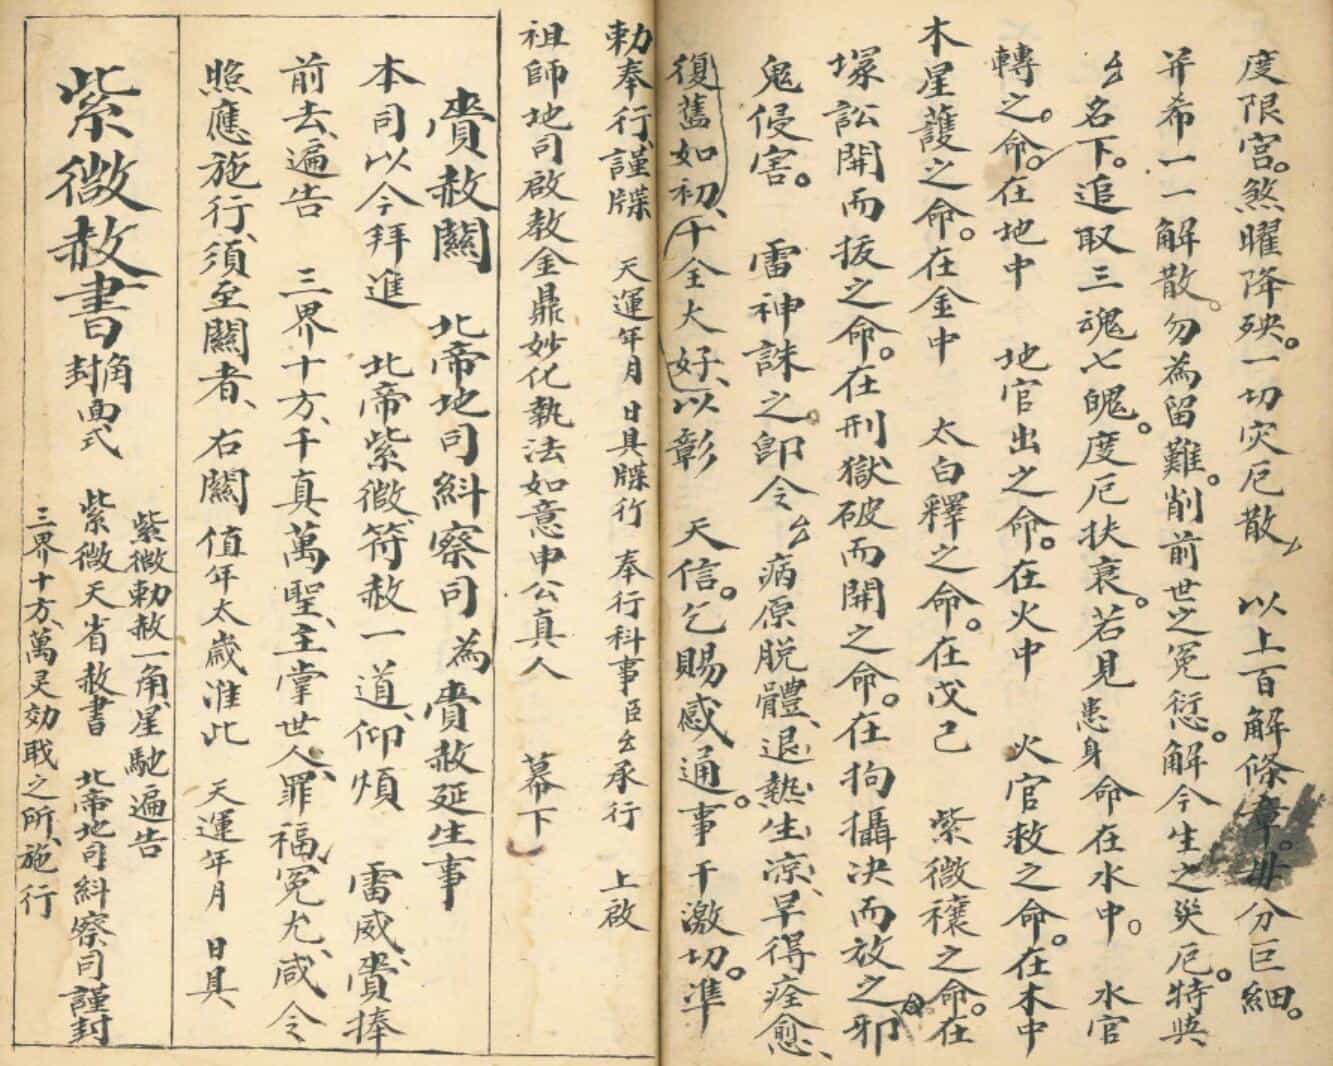 度限宮。煞曜降殃。一切灾厄散厶 以上百解條章。毋分巨細。
并希一一解散。勿為留難。削前世之冤愆。解今生之災厄。特與
厶名下。追取三魂七魄。度厄扶衰。若見患身命在水中。 水官
轉之。命。在地中 地官出之。命。在火中 火官救之。命。在木中
木星護之。命。在金中 太白釋之。命。在戊己 紫微禳之。命。在
塚訟開而拔之。命。在刑獄破而開之。命。在拘攝决而放之。邪
鬼侵害。 雷神誅之。卽令厶病原脱體、退熱生凉、早得痊愈、
復舊如初、十全大好、以彰 天信。乞賜感通。事干激切。準
勅奉行、謹牒 天運年月 日具牒行 奉行科事臣厶承行 上啟
祖師地司啟教金鼎妙化執法如意申公真人 幕下
賫赦關 北帝地司糾察司 為賫赦延生事
本司以今拜進 北帝紫微符赦一道、仰煩 雷威、賫捧
前去、遍告 三界十方、千真萬聖、主掌世人、罪福、冤尤、咸令
照應施行、須至關者、右關 值年太歲准此 天運年月 日具
紫微赦書
角
封面式
紫微勅赦一角、星馳遍告
紫微天省赦書 北帝地司糾察司謹封
三界十方、萬灵効职之所、施行